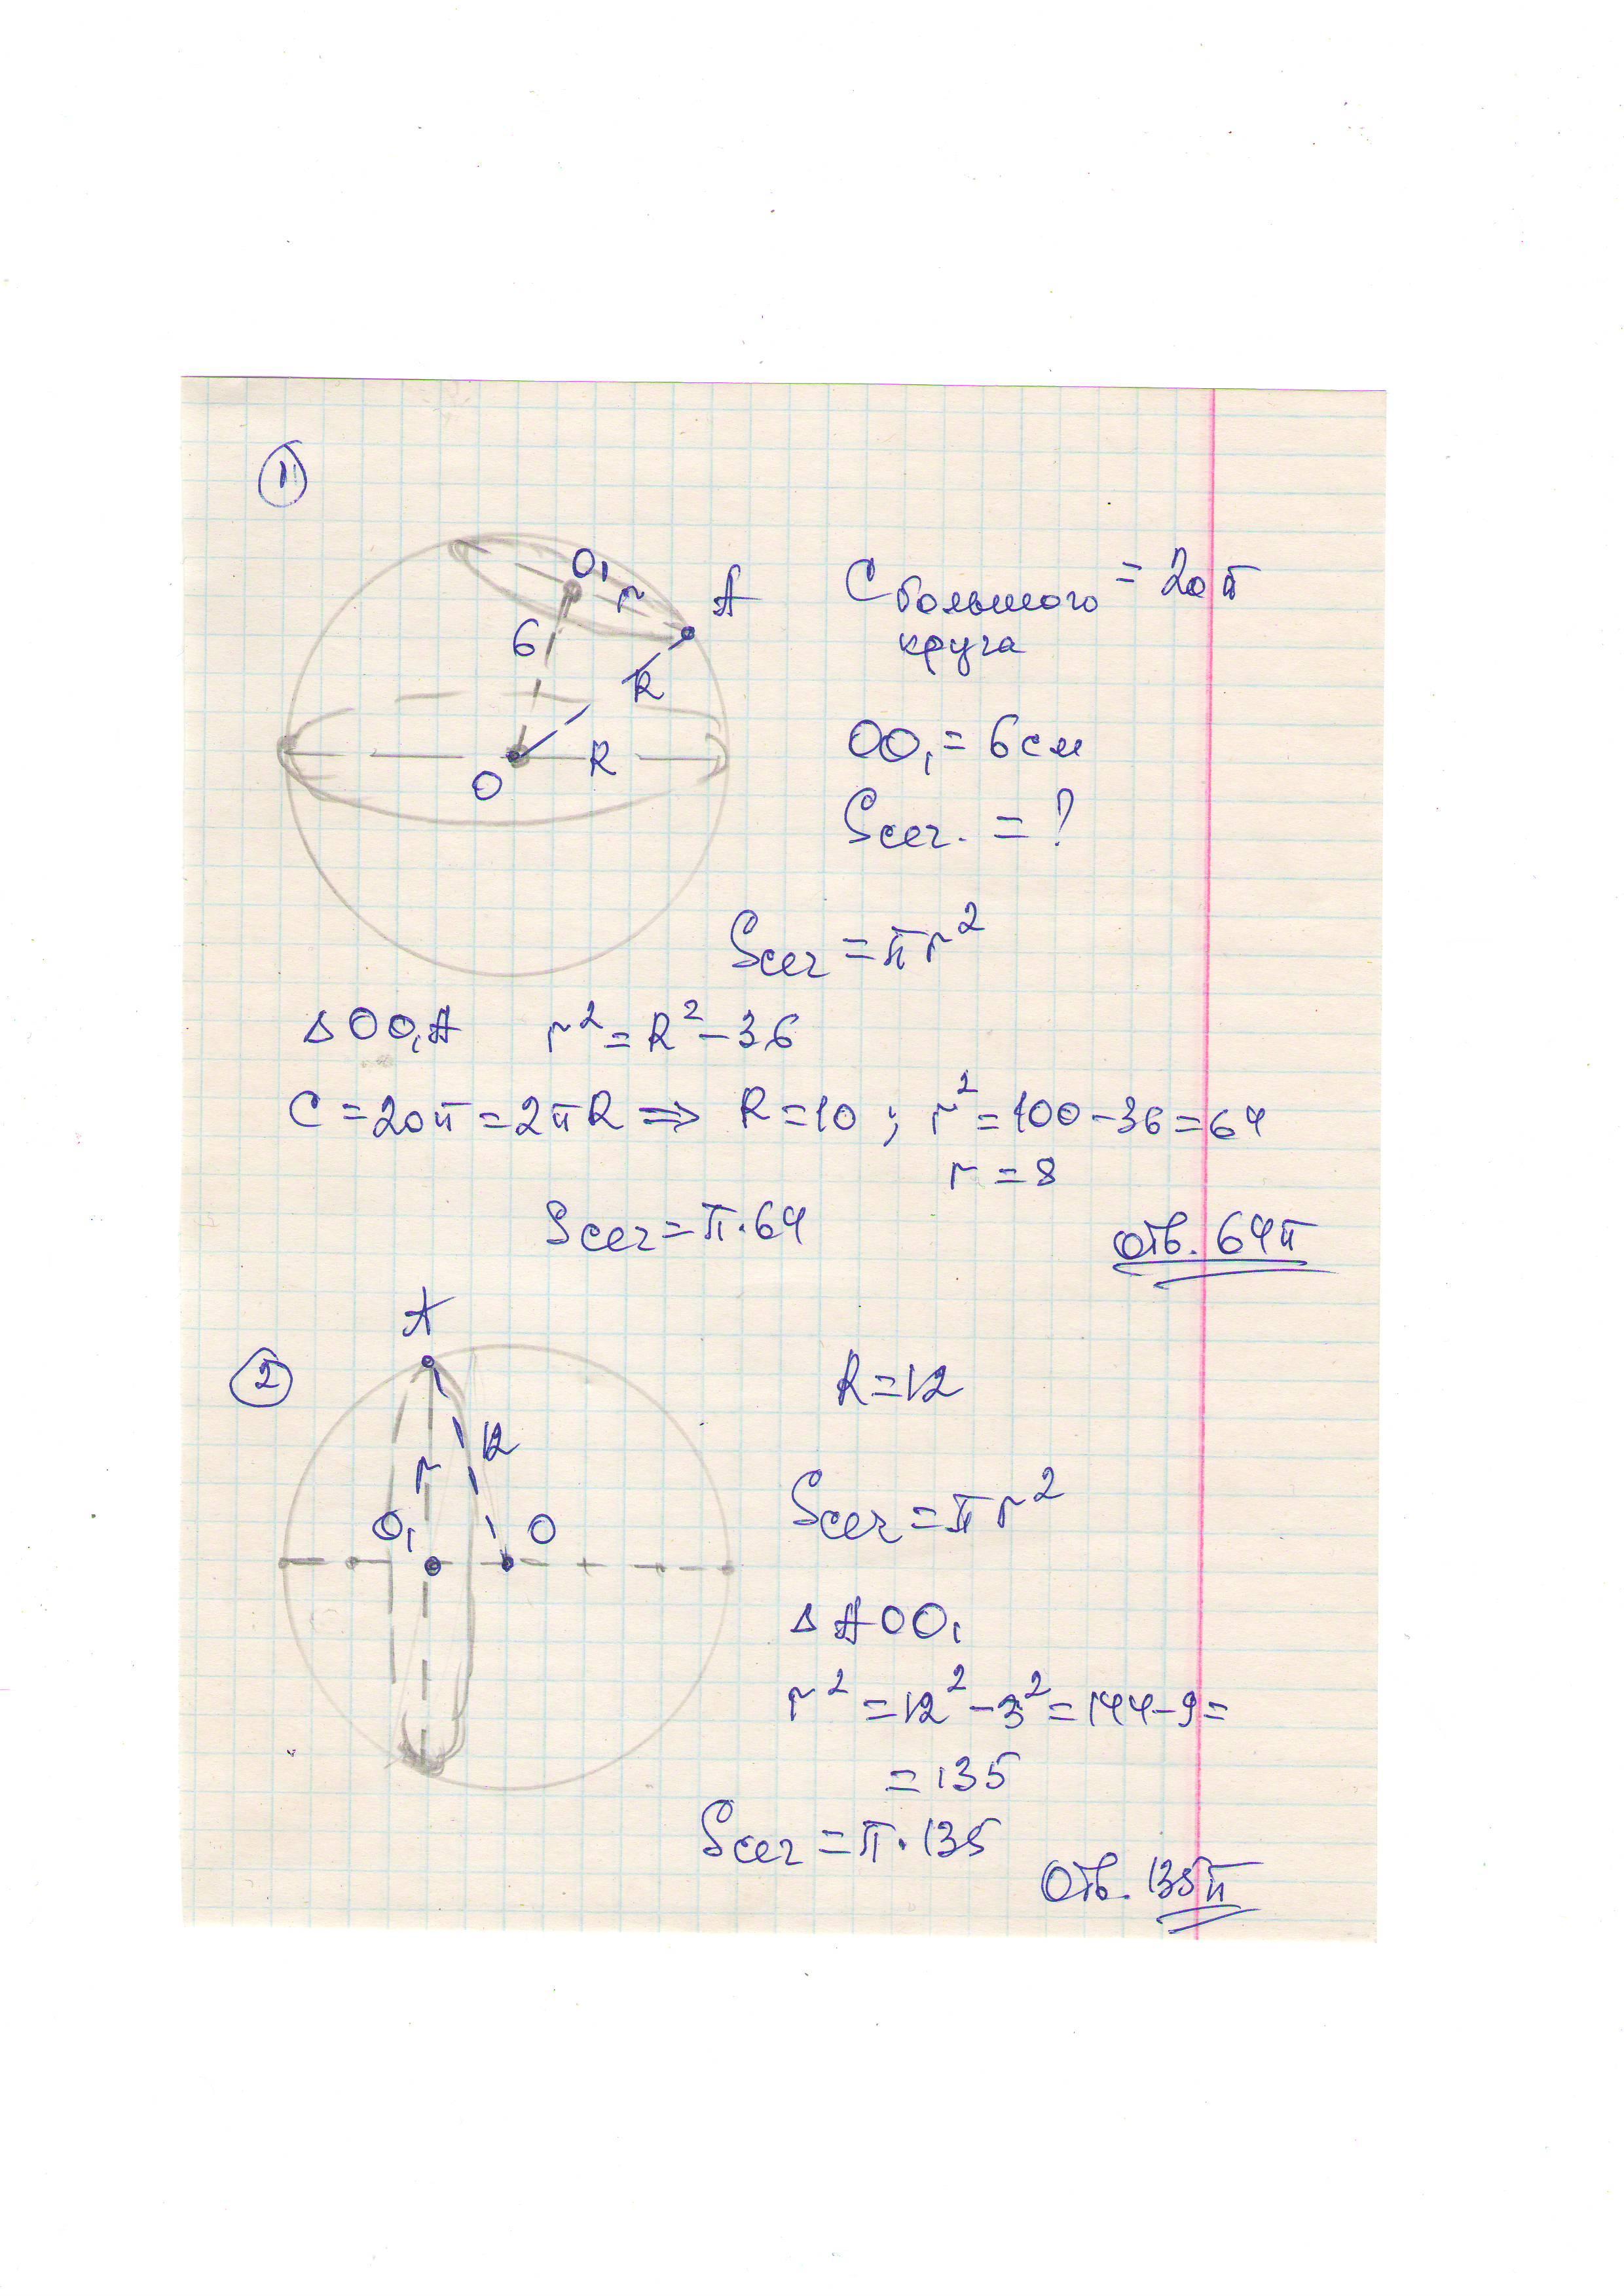 1
O₁
r
A
6
R
R
O
C большого круга = 20π
OO₁ = 6 см
Sсеч. = ?
Sсеч = πr²
△OO₁A r² = R² - 36
C = 20π = 2πR ⇒ R = 10 ; r² = 100 - 36 = 64
r = 8
Sсеч = π·64
Отв. 64π
A
2
R = 12
12
r
O₁ O
Sсеч = πr²
△AOO₁
r² = 12² - 3² = 144 - 9 =
= 135
Sсеч = π·135
Отв. 135π